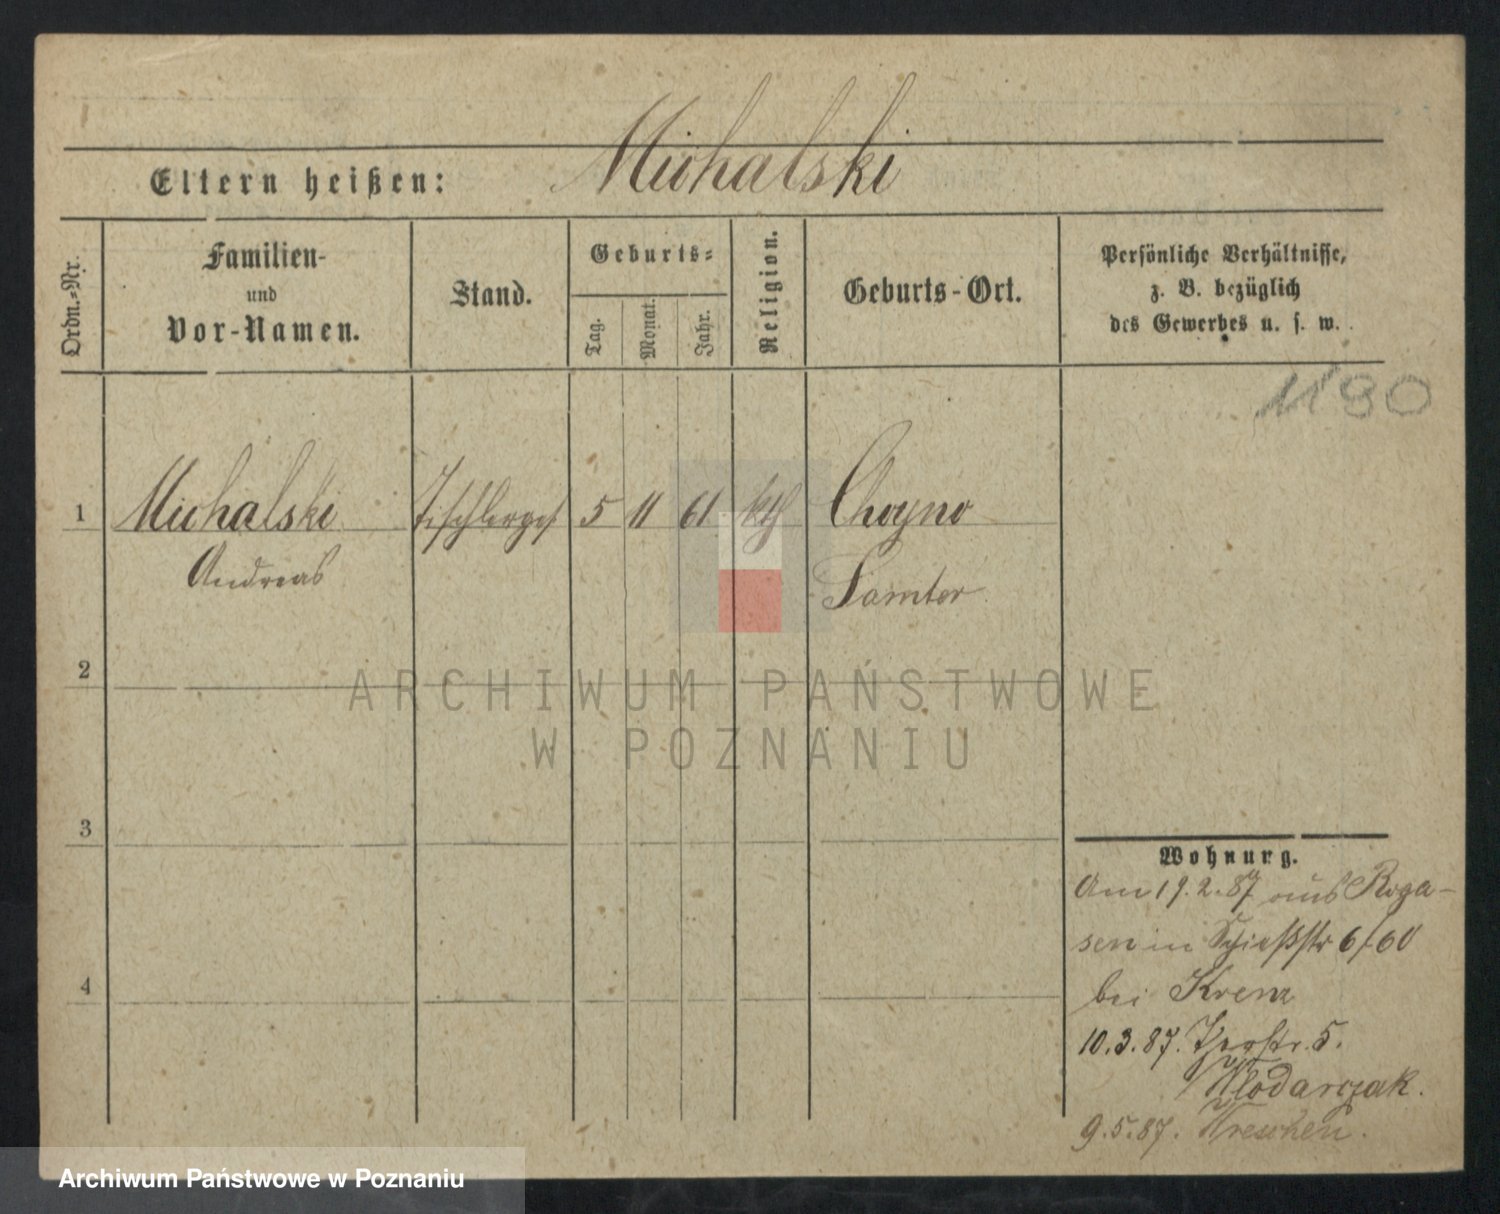 Michalski
Eltern heißen:
Ordn.=Nr.
Familien-
und
Vor-Namen.
Stand.
Geburts=
Tag.
Monat.
Jahr.
Religion.
Geburts-Ort.
Persönliche Verhältnisse,
z. B. bezüglich
des Gewerbes u. s. w.
1190
1 Michalski Tischlerges 5 11 61 kth Choyno
Andreas Samter
2
ARCHIWUM PAŃSTWOWE
W POZNANIU
3
Wohnung.
Am 19.2.87 aus Roga-
sen in Schießstr 6/60
4
bei Krenz
10.3.87. 5.
Wlodarczak.
9.5.87. Wreschen.
Archiwum Państwowe w Poznaniu